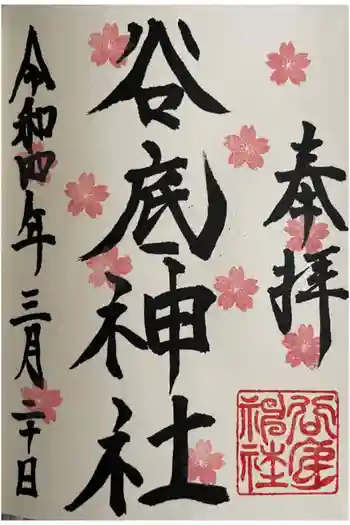 奉拝
谷底神社
令和四年三月二十日
谷底
神社